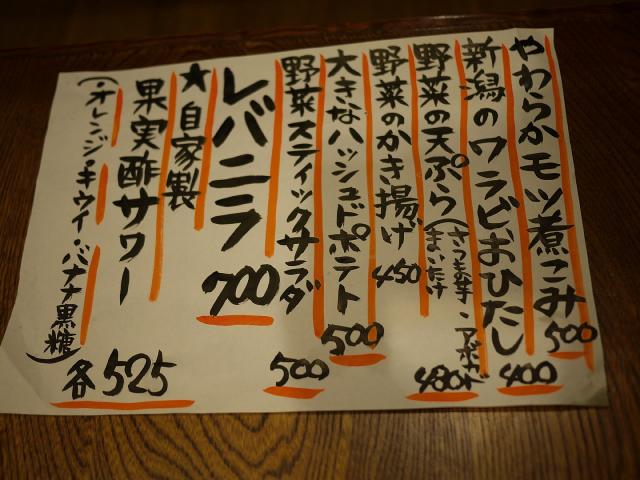 やわらかモツ煮こみ 500
新潟のワラビおひたし 400
野菜の天ぷら(さつま芋・アボカド
まいたけ 480
野菜のかき揚げ 450
大きなハッシュドポテト 500
野菜スティックサラダ 500
レバニラ 700
★自家製
果実酢サワー
(・オレンジ・キウイ・バナナ黒糖)
各525